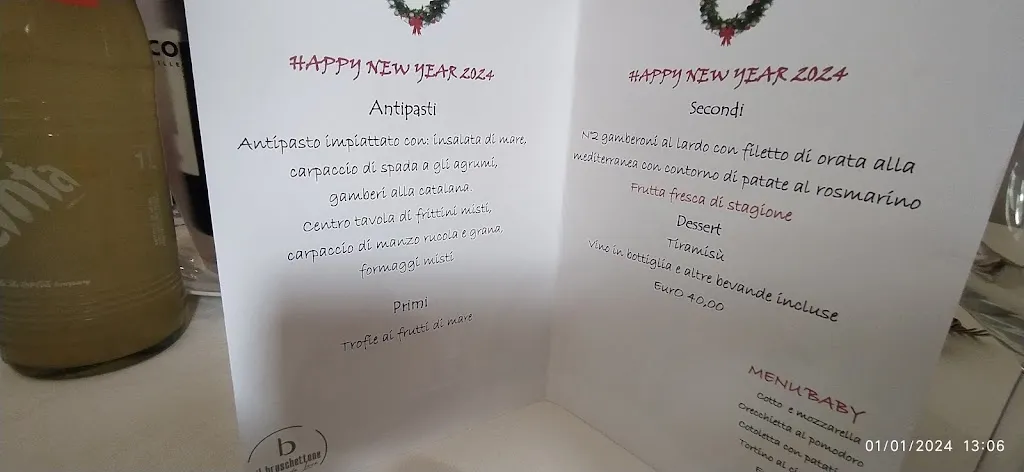 HAPPY NEW YEAR 2024
Antipasti
Antipasto impiattato con: insalata di mare,
carpaccio di spada a gli agrumi,
gamberi alla catalana.
Centro tavola di frittini misti,
carpaccio di manzo rucola e grana,
formaggi misti
Primi
Trofie ai frutti di mare
b
HAPPY NEW YEAR 2024
Secondi
N°2 gamberoni al lardo con filetto di orata alla
mediterranea con contorno di patate al rosmarino
Frutta fresca di stagione
Dessert
Tiramisù
Vino in bottiglia e altre bevande incluse
EurO 40,00
MENU BABY
Cotto e mozzarella
Orecchietta al pomodoro
Cotoletta con patati
Tortino al ci
01/01/2024 13:06